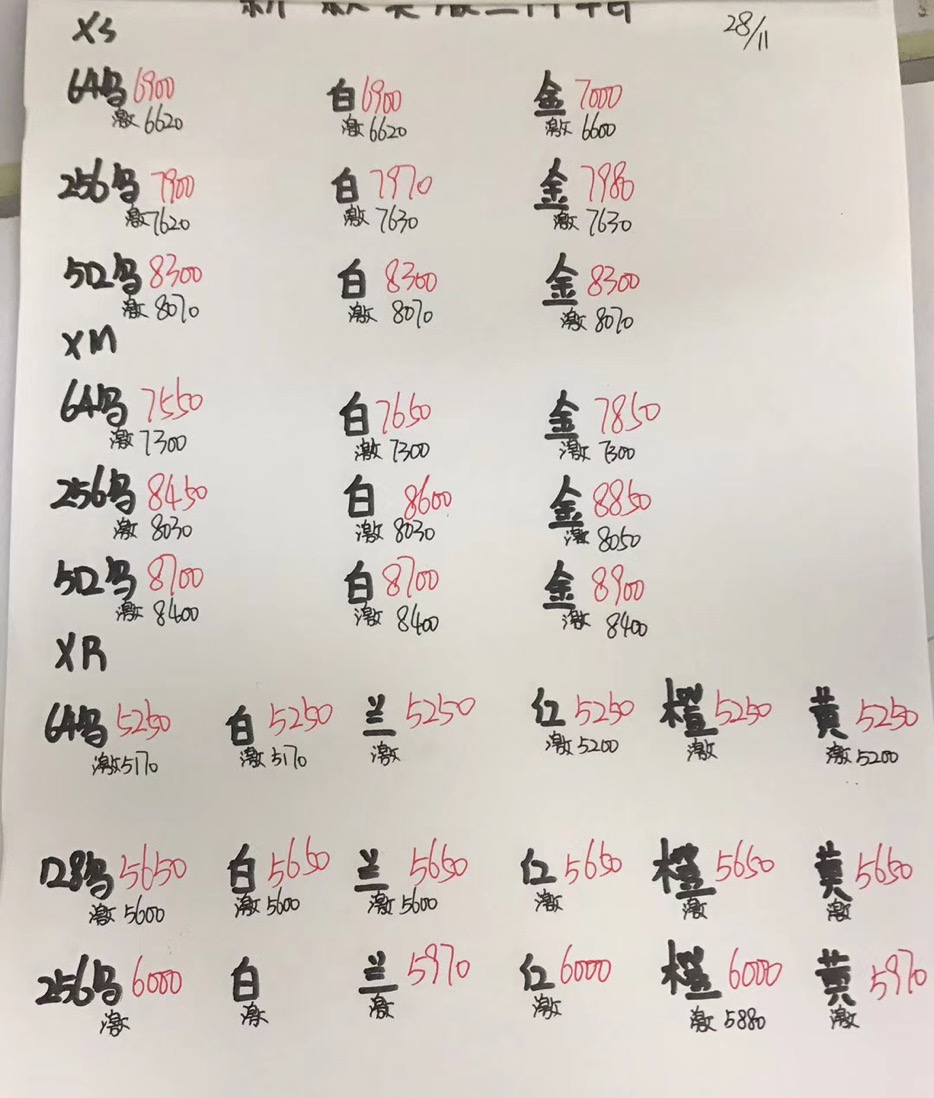 28/11
XS
64乌 6900 白 6900 金 7000
激 6620 激 6620 激 6600
256乌 7900 白 7970 金 7980
激 7620 激 7630 激 7630
512乌 8300 白 8300 金 8300
激 8070 激 8070 激 8070
XM
64乌 7550 白 7650 金 7850
激 7300 激 7300 激 7300
256乌 8450 白 8600 金 8850
激 8030 激 8030 激 8050
512乌 8700 白 8700 金 8900
激 8400 激 8400 激 8400
XR
64乌 5250 白 5250 兰 5250 红 5250 橙 5250 黄 5250
激 5170 激 5170 激 激 5200 激 激 5200
128乌 5650 白 5650 兰 5650 红 5650 橙 5650 黄 5650
激 5600 激 5600 激 5600 激 激 激
256乌 6000 白 兰 5970 红 6000 橙 6000 黄 5970
激 激 激 激 激 5880 激